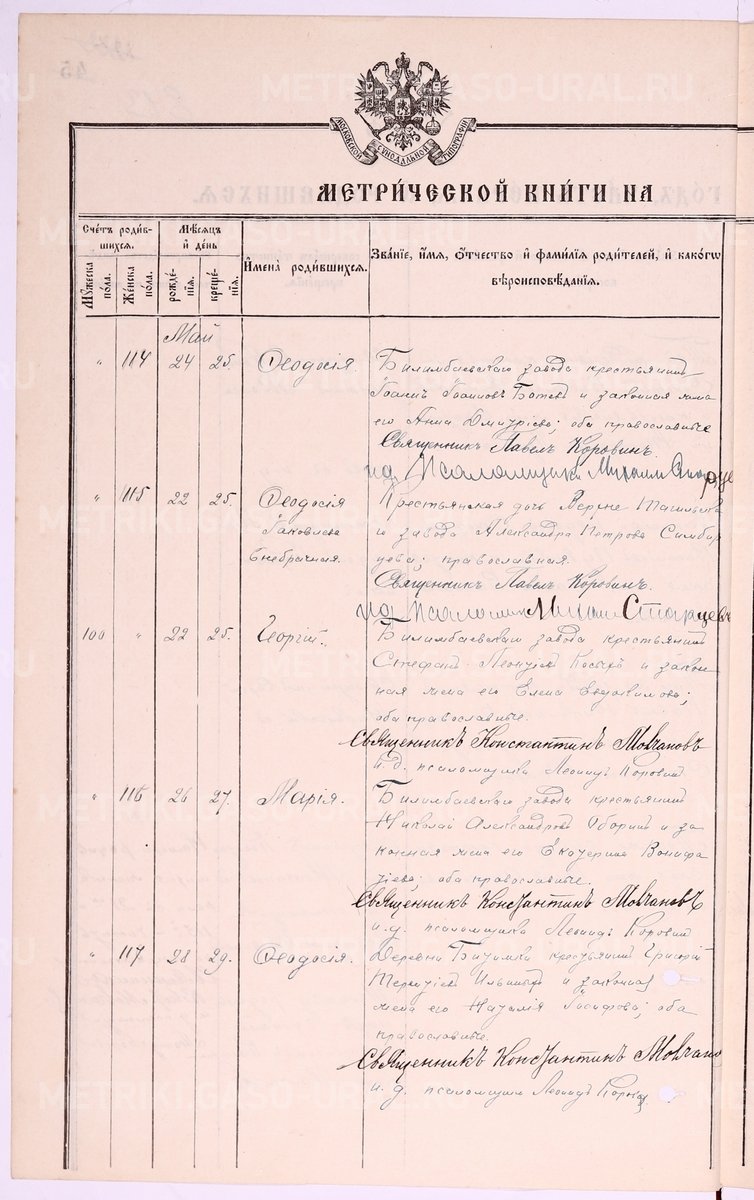 МОСКОВСКОЙ СѴНОДАЛЬНОЙ ТИПОГРАФІИ
МЕТРИ́ЧЕСКОЙ КНИ́ГИ НА
Счетъ роди́в-
шихся.
Мꙋ́жеска
по́ла.
Же́нска
по́ла.
Мѣ́сяцъ
и҆ де́нь
рожде́-
нїя.
креще́-
нїя.
И҆мена̀ роди́вшихся.
Зва́нїе, и҆́мя, ѻ҆́тчество и҆ фами́лїя роди́телей, и҆ како́гѡ
вѣроисповѣ́данїя.
Май
" 114 24 25. Ѳеодосія. Билимбаевскаго завода крестьянинъ
Іоаннъ Іоанновъ и законная жена
его Анна Димитріева; оба православные
Священникъ Павелъ Коровинъ.
Псаломщика Михаилъ
" 115 22 25. Ѳеодосія Крестьянская дочь Верхне Тагильска
Іаковлева го завода Александра Петрова Симбир
Внебрачная. цева; православная.
Священникъ Павелъ Коровинъ.
Михаил Старцевъ
100 " 22 25. Георгій. Билимбаевскаго завода крестьянинъ
Стефанъ Леонтіевъ и закон
ная жена его Елена Евдокимова;
оба православные.
Священникъ Константинъ Мовчановъ
И. д. псаломщика Леонидъ Коровин
" 116 26 27. Марія. Билимбаевскаго завода крестьянинъ
Николай Александровъ и за
конная жена его Екатерина Вонифа
тіева; оба православные.
Священникъ Константинъ Мовчановъ
и. д. псаломщика Леонидъ Коровин
" 117 28 29. Ѳеодосія. Деревни Битимки крестьянинъ Григорій
Терентіевъ и законная
жена его Наталія Іосифова; оба
православные.
Священникъ Константинъ Мовчано
и. д. псаломщика Леонидъ Коров
METRIKI.GASO-URAL.RU